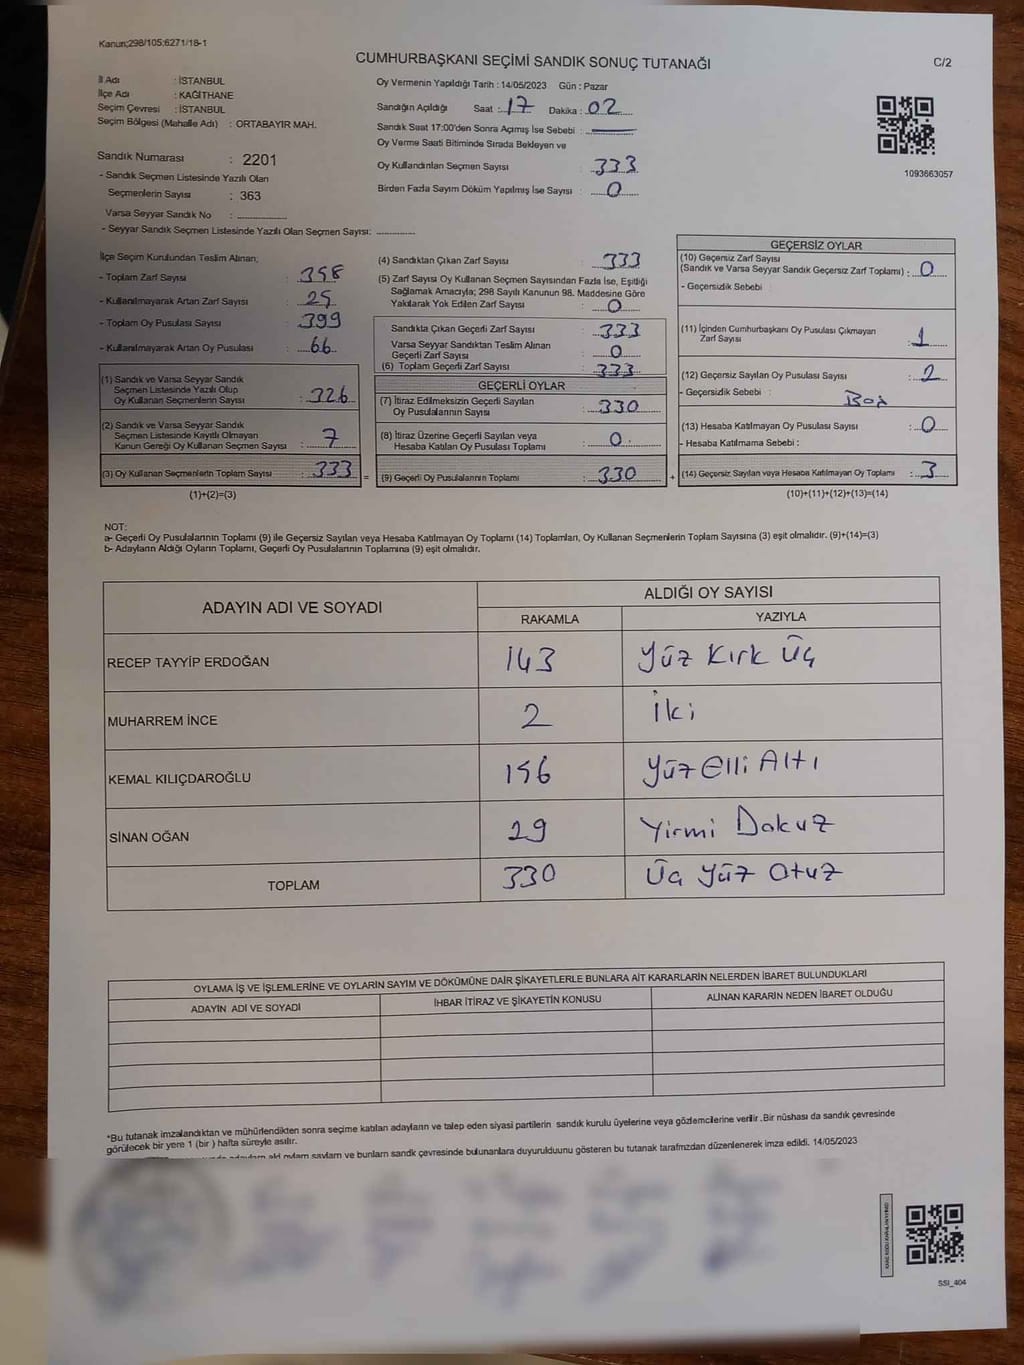 Kanun;298/105;6271/18-1
CUMHURBAŞKANI SEÇİMİ SANDIK SONUÇ TUTANAĞI
C/2
İl Adı : İSTANBUL
İlçe Adı : KAĞITHANE
Seçim Çevresi : İSTANBUL
Seçim Bölgesi (Mahalle Adı) : ORTABAYIR MAH.
Sandık Numarası : 2201
- Sandık Seçmen Listesinde Yazılı Olan
Seçmenlerin Sayısı : 363
Varsa Seyyar Sandık No :
- Seyyar Sandık Seçmen Listesinde Yazılı Olan Seçmen Sayısı:
Oy Vermenin Yapıldığı Tarih : 14/05/2023 Gün : Pazar
Sandığın Açıldığı Saat : 17 Dakika : 02
Sandık Saat 17:00'den Sonra Açımış İse Sebebi :
Oy Verme Saati Bitiminde Sırada Bekleyen ve
Oy Kullandırılan Seçmen Sayısı : 333
Birden Fazla Sayım Döküm Yapılmış İse Sayısı : 0
1093663057
İlçe Seçim Kurulundan Teslim Alınan;
- Toplam Zarf Sayısı : 358
- Kullanılmayarak Artan Zarf Sayısı : 25
- Toplam Oy Pusulası Sayısı : 399
- Kullanılmayarak Artan Oy Pusulası : 66
(1) Sandık ve Varsa Seyyar Sandık
Seçmen Listesinde Yazılı Olup
Oy Kullanan Seçmenlerin Sayısı : 326
(2) Sandık ve Varsa Seyyar Sandık
Seçmen Listesinde Kayıtlı Olmayan
Kanun Gereği Oy Kullanan Seçmen Sayısı : 7
(3) Oy Kullanan Seçmenlerin Toplam Sayısı : 333
(1)+(2)=(3)
=
(4) Sandıktan Çıkan Zarf Sayısı : 333
(5) Zarf Sayısı Oy Kullanan Seçmen Sayısından Fazla İse, Eşitliği
Sağlamak Amacıyla; 298 Sayılı Kanunun 98. Maddesine Göre
Yakılarak Yok Edilen Zarf Sayısı : 0
Sandıkta Çıkan Geçerli Zarf Sayısı : 333
Varsa Seyyar Sandıktan Teslim Alınan
Geçerli Zarf Sayısı : 0
(6) Toplam Geçerli Zarf Sayısı : 333
GEÇERLİ OYLAR
(7) İtiraz Edilmeksizin Geçerli Sayılan
Oy Pusulalarının Sayısı : 330
(8) İtiraz Üzerine Geçerli Sayılan veya
Hesaba Katılan Oy Pusulası Toplamı : 0
(9) Geçerli Oy Pusulalarının Toplamı : 330
+
GEÇERSİZ OYLAR
(10) Geçersiz Zarf Sayısı
(Sandık ve Varsa Seyyar Sandık Geçersiz Zarf Toplamı) : 0
- Geçersizlik Sebebi :
(11) İçinden Cumhurbaşkanı Oy Pusulası Çıkmayan
Zarf Sayısı : 1
(12) Geçersiz Sayılan Oy Pusulası Sayısı : 2
- Geçersizlik Sebebi : Boş
(13) Hesaba Katılmayan Oy Pusulası Sayısı : 0
- Hesaba Katılmama Sebebi :
(14) Geçersiz Sayılan veya Hesaba Katılmayan Oy Toplamı : 3
(10)+(11)+(12)+(13)=(14)
NOT:
a- Geçerli Oy Pusulalarının Toplamı (9) ile Geçersiz Sayılan veya Hesaba Katılmayan Oy Toplamı (14) Toplamları, Oy Kullanan Seçmenlerin Toplam Sayısına (3) eşit olmalıdır. (9)+(14)=(3)
b- Adayların Aldığı Oyların Toplamı, Geçerli Oy Pusulalarının Toplamına (9) eşit olmalıdır.
ADAYIN ADI VE SOYADI ALDIĞI OY SAYISI
RAKAMLA YAZIYLA
RECEP TAYYİP ERDOĞAN 143 Yüz Kırk Üç
MUHARREM İNCE 2 İki
KEMAL KILIÇDAROĞLU 156 Yüz Elli Altı
SİNAN OĞAN 29 Yirmi Dokuz
TOPLAM 330 Üç Yüz Otuz
OYLAMA İŞ VE İŞLEMLERİNE VE OYLARIN SAYIM VE DÖKÜMÜNE DAİR ŞİKAYETLERLE BUNLARA AİT KARARLARIN NELERDEN İBARET BULUNDUKLARI
ADAYIN ADI VE SOYADI İHBAR İTİRAZ VE ŞİKAYETİN KONUSU ALINAN KARARIN NEDEN İBARET OLDUĞU
*Bu tutanak imzalandıktan ve mühürlendikten sonra seçime katılan adayların ve talep eden siyasi partilerin sandık kurulu üyelerine veya gözlemcilerine verilir .Bir nüshası da sandık çevresinde
görülecek bir yere 1 (bir ) hafta süreyle asılır.
ve bunların sandık çevresinde bulunanlara duyurulduunu gösteren bu tutanak tarafımızdan düzenlenerek imza edildi. 14/05/2023
SSI_404